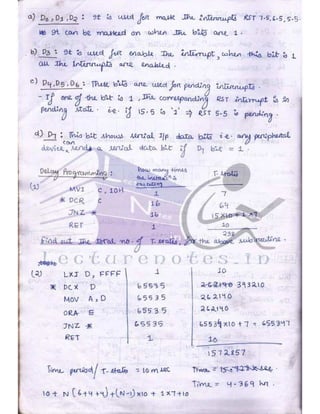 a) D0, D1, D2 : It is used for mask the Interrupts RST 7.5, 6.5, 5.5.
It can be masked on when the bits are 1.
b) D3 : It is used for enable the Interrupt, when this bit is 1
all the Interrupts are enabled.
c) D4, D5, D6 : These bits are used for pending interrupts.
- If one of the bit is 1, the corresponding RST interrupt is in
pending state. i.e. if I5.5 is '1' ⇒ RST 5.5 is pending.
d) D7 : This bit shows serial I/p data bits i.e. any peripheral
device can sends a serial data bit if D7 bit = 1.
Delay Programming : How many times T states
the instrn is
executed
(1) MVI C, 10H 1 7
* DCR C 16 64
JNZ * 16 15x10 + 1x7
RET 1 10
238
Find out the total no. of T. states, for the above subroutine.
Lecturenotes.in
(2) LXI D, FFFF 1 10
* DCX D 65535 393210
MOV A, D 65535 262140
ORA E 65535 262140
JNZ * 65535 65534x10 + 7 = 655347
RET 1 10
1572857
Time period / T. state = 10 msec
Time = 4.369 hr.
10 + N (6+4+4) + (N-1)x10 + 1x7 + 10